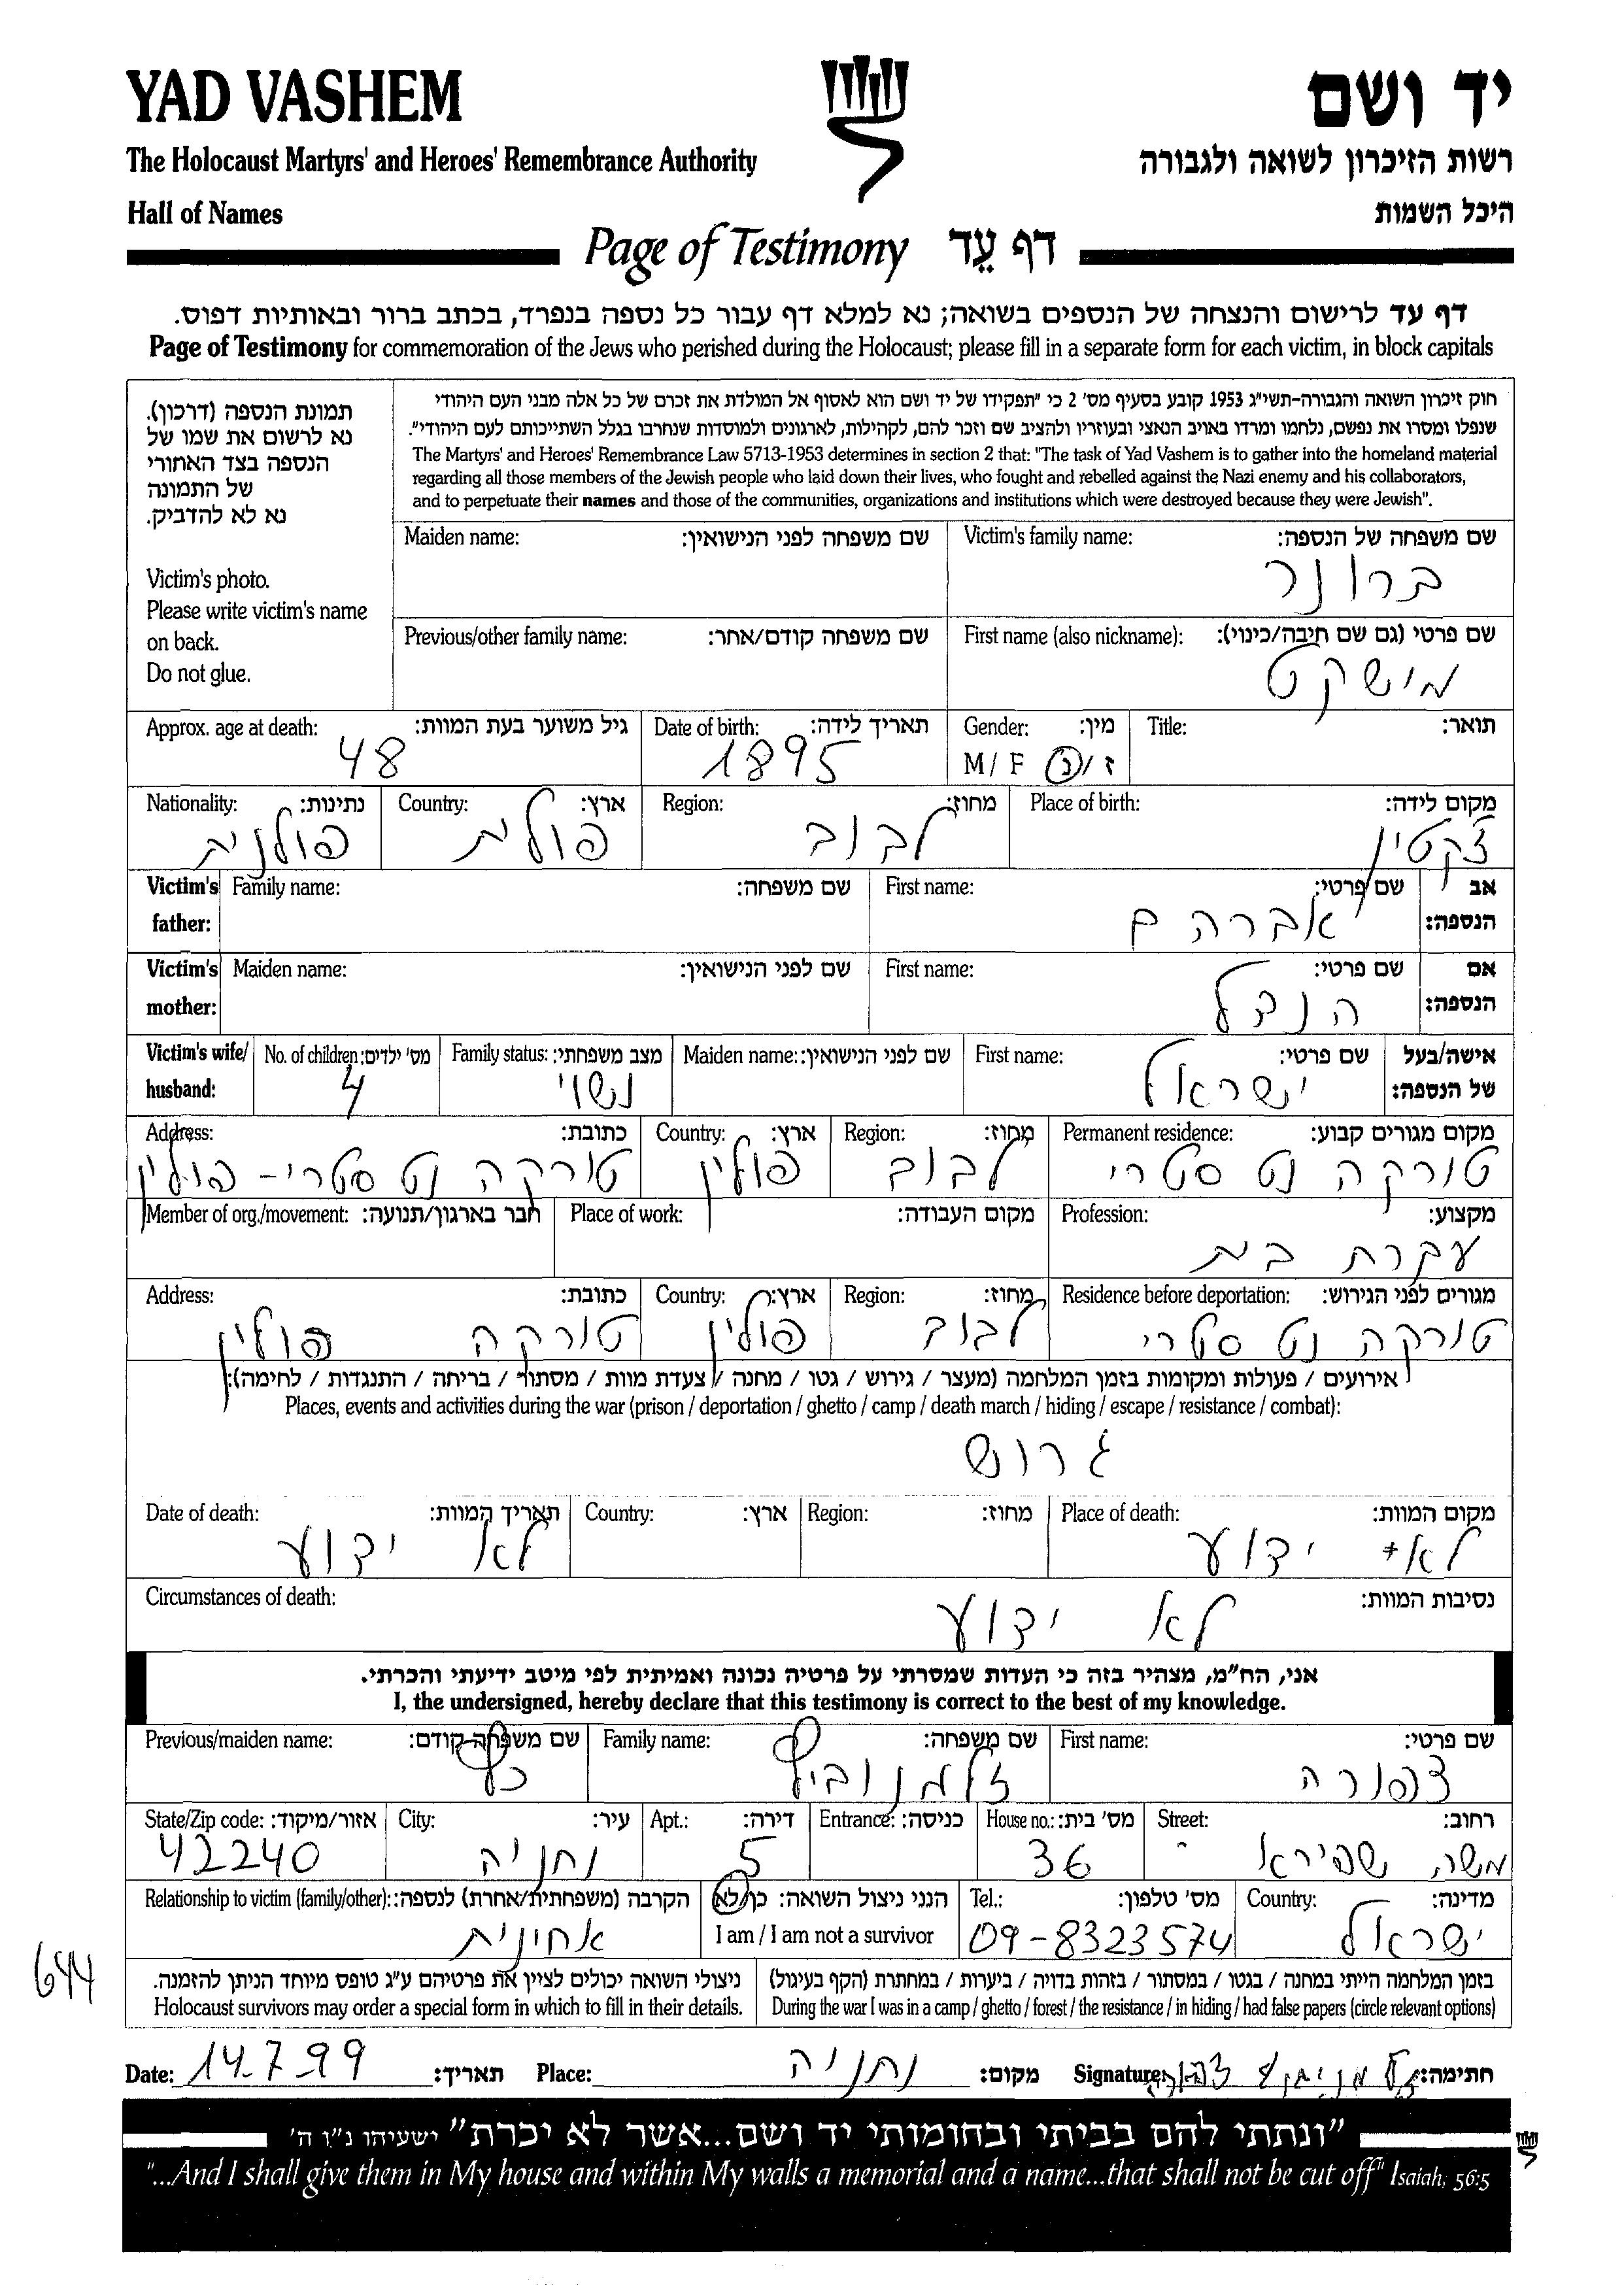 YAD VASHEM
יד ושם
The Holocaust Martyrs' and Heroes' Remembrance Authority
רשות הזיכרון לשואה ולגבורה
Hall of Names
היכל השמות
Page of Testimony דף עֵד
דף עד לרישום והנצחה של הנספים בשואה; נא למלא דף עבור כל נספה בנפרד, בכתב ברור ובאותיות דפוס.
Page of Testimony for commemoration of the Jews who perished during the Holocaust; please fill in a separate form for each victim, in block capitals
תמונת הנספה (דרכון).
נא לרשום את שמו של
הנספה בצד האחורי
של התמונה
נא לא להדביק.
Victim's photo.
Please write victim's name
on back.
Do not glue.
חוק זיכרון השואה והגבורה-תשי"ג 1953 קובע בסעיף מס' 2 כי "תפקידו של יד ושם הוא לאסוף אל המולדת את זכרם של כל אלה מבני העם היהודי
שנפלו ומסרו את נפשם, נלחמו ומרדו באויב הנאצי ובעוזריו ולהציב שם וזכר להם, לקהילות, לארגונים ולמוסדות שנחרבו בגלל השתייכותם לעם היהודי".
The Martyrs' and Heroes' Remembrance Law 5713-1953 determines in section 2 that: "The task of Yad Vashem is to gather into the homeland material
regarding all those members of the Jewish people who laid down their lives, who fought and rebelled against the Nazi enemy and his collaborators,
and to perpetuate their names and those of the communities, organizations and institutions which were destroyed because they were Jewish".
Victim's family name: שם משפחה של הנספה:
ברונר
Maiden name: שם משפחה לפני הנישואין:
First name (also nickname): שם פרטי (גם שם חיבה/כינוי):
מישקט
Previous/other family name: שם משפחה קודם/אחר:
Title: תואר:
Gender: מין:
M / F ז/נ
Date of birth: תאריך לידה:
1895
Approx. age at death: גיל משוער בעת המוות:
48
Place of birth: מקום לידה:
Region: מחוז:
לבוב
Country: ארץ:
Nationality: נתינות:
פולנית
Victim's father: אב הנספה:
First name: שם פרטי:
אברהם
Family name: שם משפחה:
Victim's mother: אם הנספה:
First name: שם פרטי:
Maiden name: שם לפני הנישואין:
Victim's wife/ husband: אישה/בעל של הנספה:
First name: שם פרטי:
ישראל
Maiden name: שם לפני הנישואין:
Family status: מצב משפחתי:
נשוי
No. of children: מס' ילדים:
4
Permanent residence: מקום מגורים קבוע:
טורקה נט סטרי
Region: מחוז:
לבוב
Country: ארץ:
פולין
Address: כתובת:
טורקה נט סטרי - פולין
Profession: מקצוע:
עקרת בית
Place of work: מקום העבודה:
Member of org./movement: חבר בארגון/תנועה:
Residence before deportation: מגורים לפני הגירוש:
טורקה נט סטרי
Region: מחוז:
לבוב
Country: ארץ:
פולין
Address: כתובת:
טורקה פולין
אירועים / פעולות ומקומות בזמן המלחמה (מעצר / גירוש / גטו / מחנה / צעדת מוות / מסתור / בריחה / התנגדות / לחימה):
Places, events and activities during the war (prison / deportation / ghetto / camp / death march / hiding / escape / resistance / combat):
גרוש
Place of death: מקום המוות:
לא ידוע
Region: מחוז:
Country: ארץ:
Date of death: תאריך המוות:
לא ידוע
Circumstances of death: נסיבות המוות:
לא ידוע
אני, הח"מ, מצהיר בזה כי העדות שמסרתי על פרטיה נכונה ואמיתית לפי מיטב ידיעתי והכרתי.
I, the undersigned, hereby declare that this testimony is correct to the best of my knowledge.
First name: שם פרטי:
צפורה
Family name: שם משפחה:
זלמנוביץ
Previous/maiden name: שם משפחה קודם:
כץ
Street: רחוב:
משה שפירא
House no.: מס' בית:
36
Entrance: כניסה:
Apt.: דירה:
5
City: עיר:
נתניה
State/Zip code: אזור/מיקוד:
42240
Country: מדינה:
ישראל
Tel.: מס' טלפון:
09-8323574
הנני ניצול השואה: כן/לא
I am / I am not a survivor
Relationship to victim (family/other): הקרבה (משפחתית/אחרת) לנספה:
אחינית
644
בזמן המלחמה הייתי במחנה / בגטו / במסתור / בזהות בדויה / ביערות / במחתרת (הקף בעיגול)
During the war I was in a camp / ghetto / forest / the resistance / in hiding / had false papers (circle relevant options)
ניצולי השואה יכולים לציין את פרטיהם ע"ג טופס מיוחד הניתן להזמנה.
Holocaust survivors may order a special form in which to fill in their details.
Date: 14.7.99 תאריך:
Place: נתניה מקום:
Signature: חתימה:
"ונתתי להם בביתי ובחומותי יד ושם...אשר לא יכרת" ישעיהו נ"ו ה'
"...And I shall give them in My house and within My walls a memorial and a name...that shall not be cut off" Isaiah, 56:5